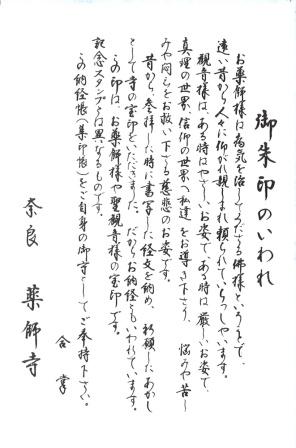 御朱印のいわれ
お薬師様は病気を治して下さる佛様ということで、
遠い昔から人々に仰がれ親しまれ頼られていらっしゃいます。
観音様は、ある時はやさしいお姿で、ある時は厳しいお姿で、
真理の世界、信仰の世界へ私達をお導き下さり、悩みや苦し
みや悶えをお救い下さる慈悲のお姿です。
昔から、参拝した時に書写した経文を納め、祈願したあかし
として寺の宝印をいただきました。だからお納経ともいわれています。
この印は、お薬師様や聖観音様の宝印です。
記念スタンプとは異なるものです。
この納経帳(集印帳)をご自身の御守としてご奉持下さい。
合掌
奈良 薬師寺